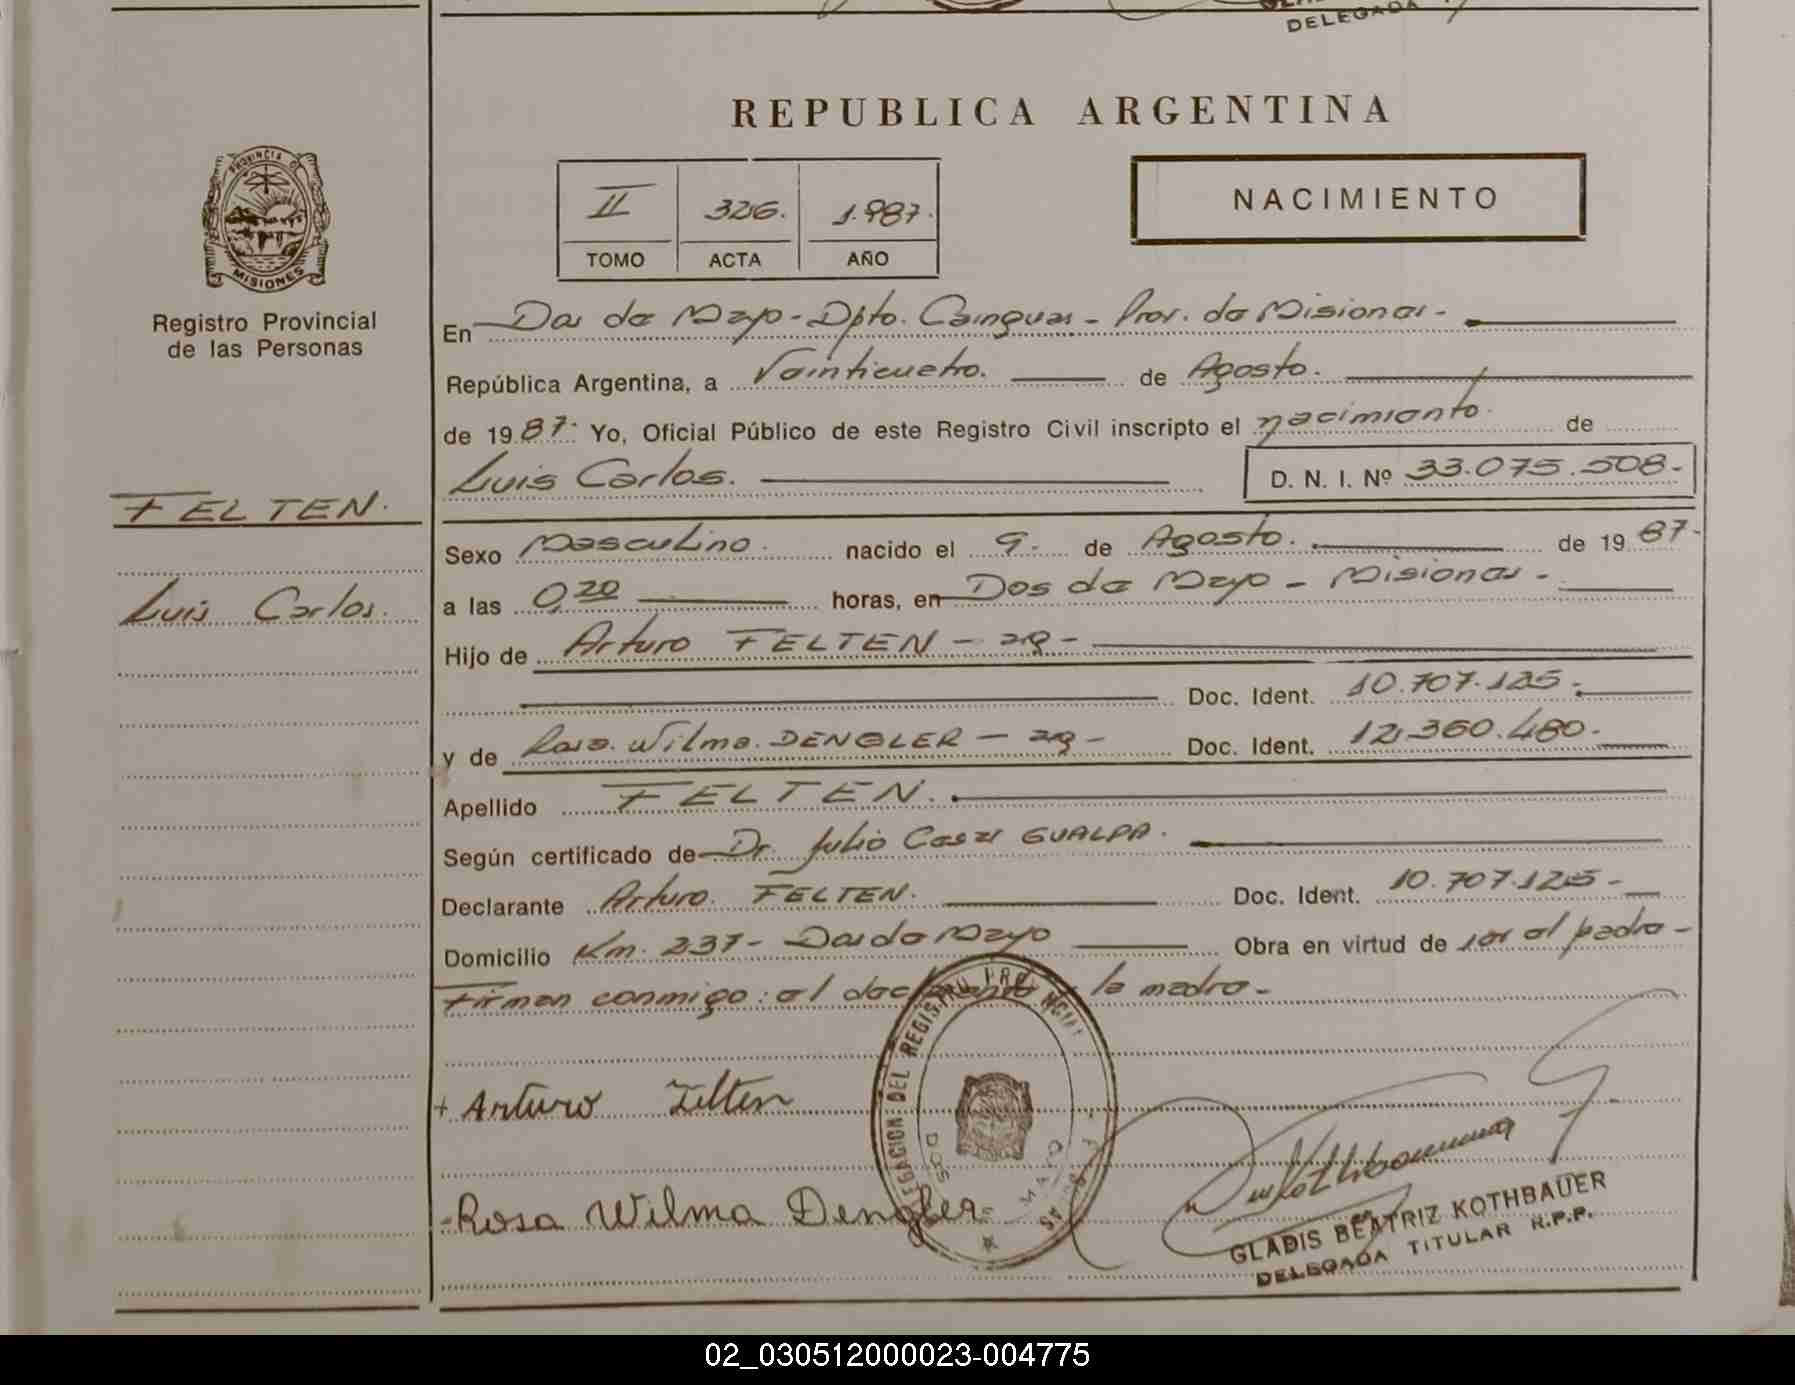 DELEGADA
REPUBLICA ARGENTINA
PROVINCIA DE
MISIONES
Registro Provincial
de las Personas
II 326. 1.987.
TOMO ACTA AÑO
NACIMIENTO
En Dos de Mayo - Dpto. Cainguas - Prov. de Misiones.-
República Argentina, a Veinticuatro. de Agosto.
de 1987. Yo, Oficial Público de este Registro Civil inscripto el nacimiento. de
Luis Carlos. D. N. I. Nº 33.075.508.-
FELTEN.
Luis Carlos.
Sexo Masculino. nacido el 9. de Agosto. de 1987.-
a las 0,20 horas, en Dos de Mayo - Misiones.-
Hijo de Arturo FELTEN - ag -
Doc. Ident. 10.707.125.-
y de Rosa Wilma DENGLER - ag - Doc. Ident. 12.360.480.-
Apellido FELTEN.
Según certificado de Dr. Julio Cesar GUALPA.
Declarante Arturo FELTEN. Doc. Ident. 10.707.125.-
Domicilio Km. 237 - Dos de Mayo Obra en virtud de ser el padre -
Firman conmigo: el declarante y la madre.-
Arturo Felten
Rosa Wilma Dengler
DELEGACION DEL REGISTRO PROVINCIAL
DOS MAYO
GLADIS BEATRIZ KOTHBAUER
DELEGADA TITULAR R.P.P.
02_030512000023-004775